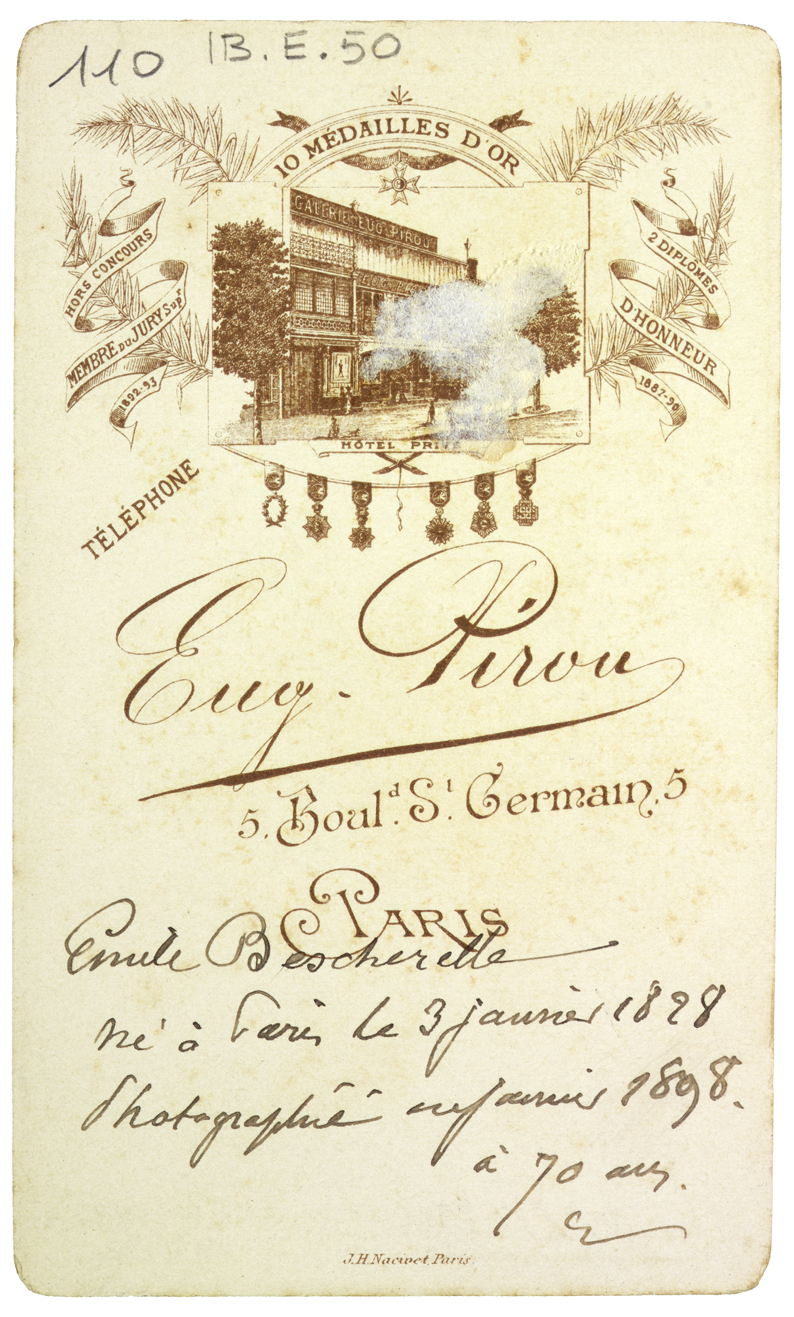 110 B.E.50
10 MÉDAILLES D'OR
GALERIE EUG. PIROU
HORS CONCOURS
MEMBRE DU JURY Supr
1892-93
2 DIPLÔMES
D'HONNEUR
1887-90
HÔTEL PRIVÉ
TÉLÉPHONE
Eug. Pirou
5, Bould. St. Germain, 5
PARIS
Emile Bescherelle
né à Paris le 3 janvier 1828
Photographié en janvier 1898.
à 70 ans.
J.H.Nacivet, Paris.